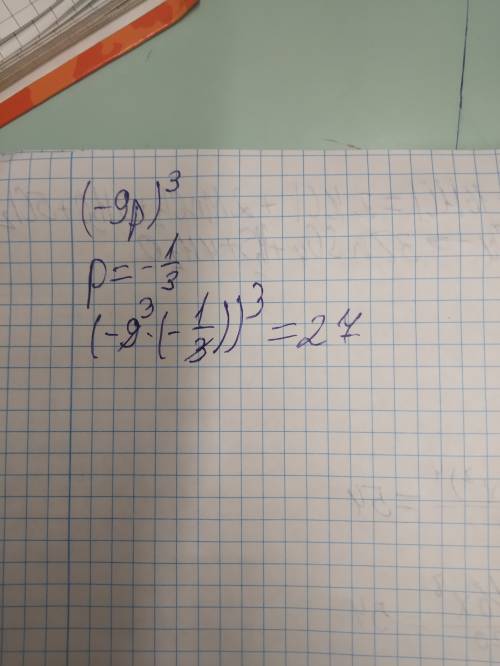 (-9p)³
p=-1/3
(-9³·(-1/3))³=27